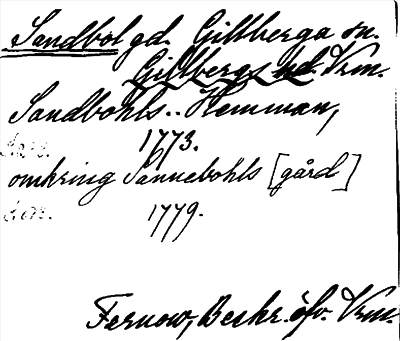 Sandbol gd. Gillberga sn.
Gillbergs hd. Vrm.
Sandbohls.. Hemman,
1773.
omkring Sannebohls [gård]
1779.
Fernow, Beskr. öfv. Vrm.